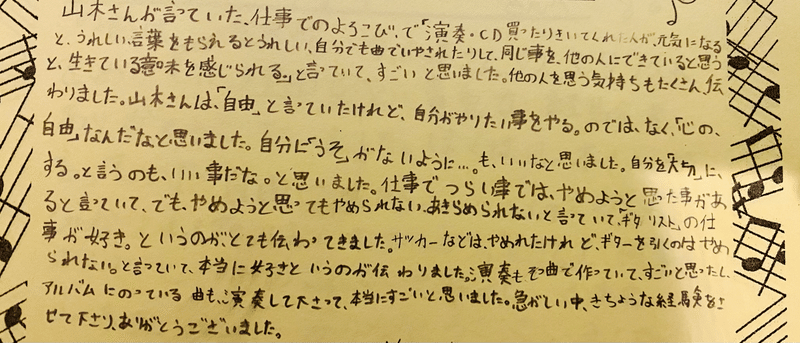 山木さんが言っていた、仕事でのよろこび、で「演奏・CD買ったりきいてくれた人が、元気になる
と、うれしい、言葉をもらえるとうれしい、自分でも曲でいやされたりして、同じ事を、他の人にできていると思う
と、生きている意味を感じられる。」と言っていて、すごいと思いました。他の人を思う気持ちもたくさん、伝
わりました。山木さんは、「自由」と言っていたけれど、自分がやりたい事をやる。のでは、なく、「心の、
自由」なんだなと思いました。自分に「うそ」がないように…。も、いいなと思いました。自分を「大切」に、
する。と言うのも、いい事だな。と思いました。仕事でつらい事では、やめようと思った事があ
ると言っていて、でも、やめようと思ってもやめられない、あきらめられないと言っていて、「ギタリスト」の仕
事が好き。というのがとても伝わってきました。サッカーなどは、やめれたけれど、ギターを引くのはやめ
られない。と言っていて、本当に好きというのが伝わりました。演奏もその曲で作っていて、すごいと思ったし、
アルバムにのっている曲も、演奏して下さって、本当にすごいと思いました。急がしい中、きちょうな経験をさ
せて下さり、ありがとうございました。